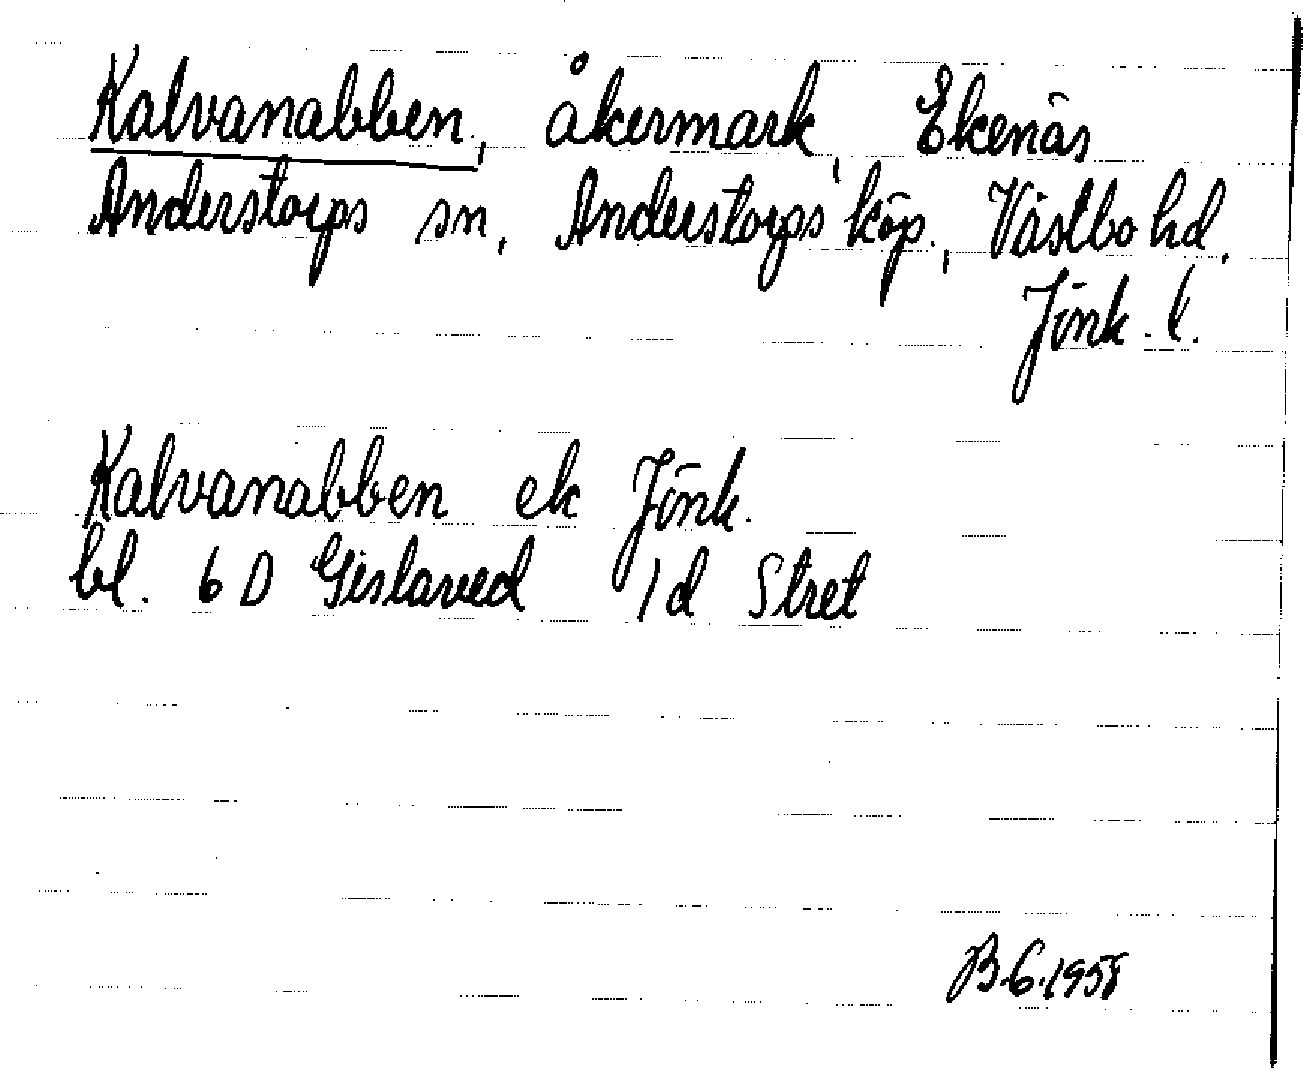 Kalvanabben, åkermark, Ekenäs
Anderstorps sn, Anderstorps köp., Västbo hd,
Jönk. l.
Kalvanabben ek Jönk.
bl. 6 D Gislaved 1 d Stret
B.G. 1958